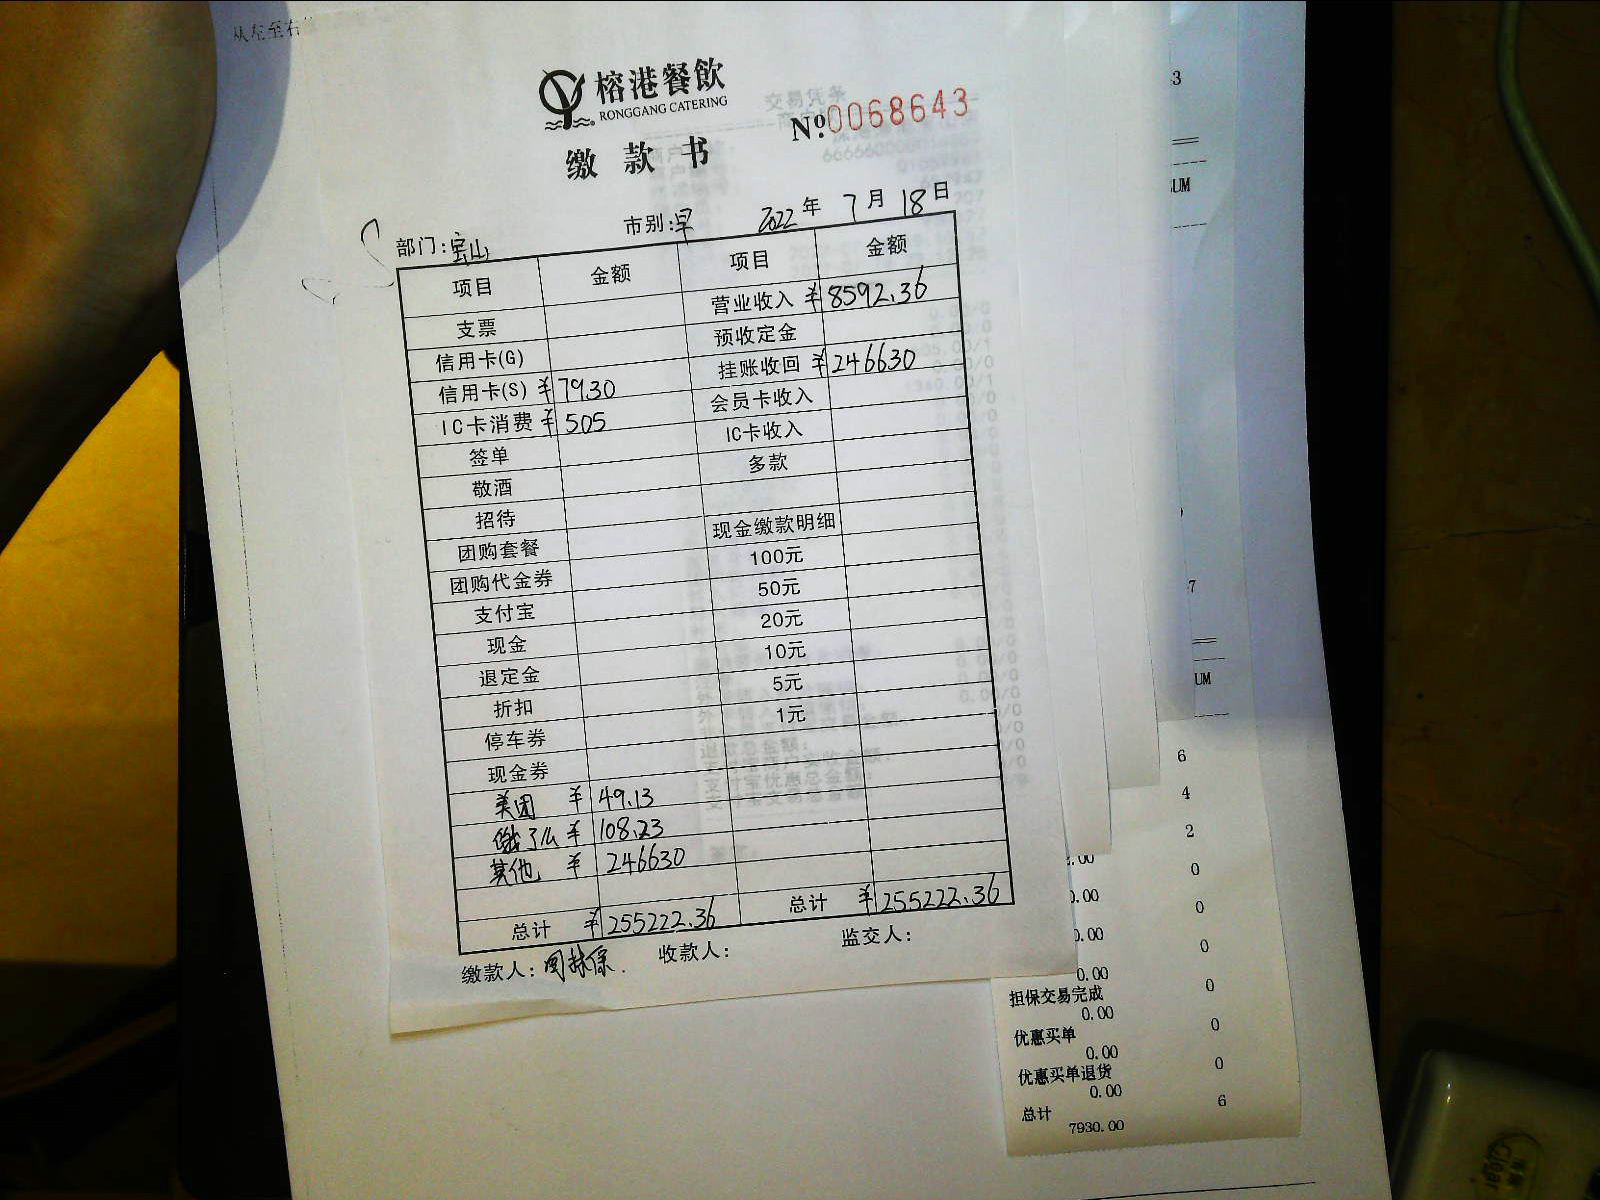 从左至右
榕港餐飲
RONGGANG CATERING
缴款书
№ 0068643
部门:宝山 市别:早 2022年7月18日
项目 金额 项目 金额
营业收入 ¥8592.36
支票 预收定金
信用卡(G) 挂账收回 ¥246630
信用卡(S) ¥7930 会员卡收入
IC卡消费 ¥505 IC卡收入
签单 多款
敬酒
招待 现金缴款明细
团购套餐 100元
团购代金券 50元
支付宝 20元
现金 10元
退定金 5元
折扣 1元
停车券
现金券
美团 ¥49.13
饿了么 ¥108.23
其他 ¥246630
总计 ¥255222.36 总计 ¥255222.36
缴款人: 收款人: 监交人:
交易凭条
3
UM
7
UM
6
4
2
.00 0
0.00 0
0.00 0
0.00
担保交易完成 0
0.00
优惠买单 0
0.00
优惠买单退货 0
0.00
总计 6
7930.00